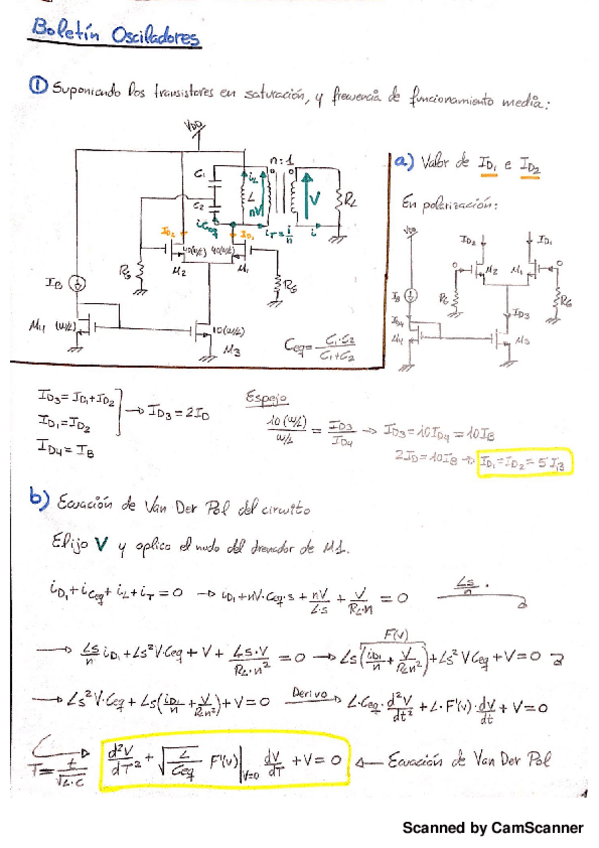 Boletín Osciladores
① Suponiendo los transistores en saturación, y frecuencia de funcionamiento media:
VDD
n:1
C1
iL
L
nV
V
RL
C2
iCeq
iT = i/n
i
ID2
ID1
40(W/L)
40(W/L)
RG
M2
M1
RG
IB
M4 (W/L)
10(W/L)
M3
Ceq = C1·C2/(C1+C2)
a) Valor de ID1 e ID2
En polarización:
VDD
ID2
ID1
M2
M1
RG
RG
IB
ID3
ID4
M4
M3
ID3 = ID1 + ID2
ID1 = ID2
ID4 = IB
→ ID3 = 2ID
Espejo
10(W/L)/(W/L) = ID3/ID4 → ID3 = 10ID4 = 10IB
2ID = 10IB → ID1 = ID2 = 5IB
b) Ecuación de Van Der Pol del circuito
Elijo V y aplico el nudo del drenador de M1.
iD1 + iCeq + iL + iT = 0 → iD1 + nV·Ceq·s + nV/(L·s) + V/(RL·n) = 0   Ls/n ·
→ Ls/n iD1 + Ls²V·Ceq + V + Ls·V/(RL·n²) = 0 → Ls(iD1/n + V/(RLn²)) + Ls²VCeq + V = 0
F(v)
→ Ls²V·Ceq + Ls(iD1/n + V/(RLn²)) + V = 0 Derivo → L·Ceq·d²V/dt² + L·F'(v)·dV/dt + V = 0
T = t/√(L·C)   d²V/dT² + √(L/Ceq) F'(v)|V=0 dV/dT + V = 0 ← Ecuación de Van Der Pol
1
Scanned by CamScanner